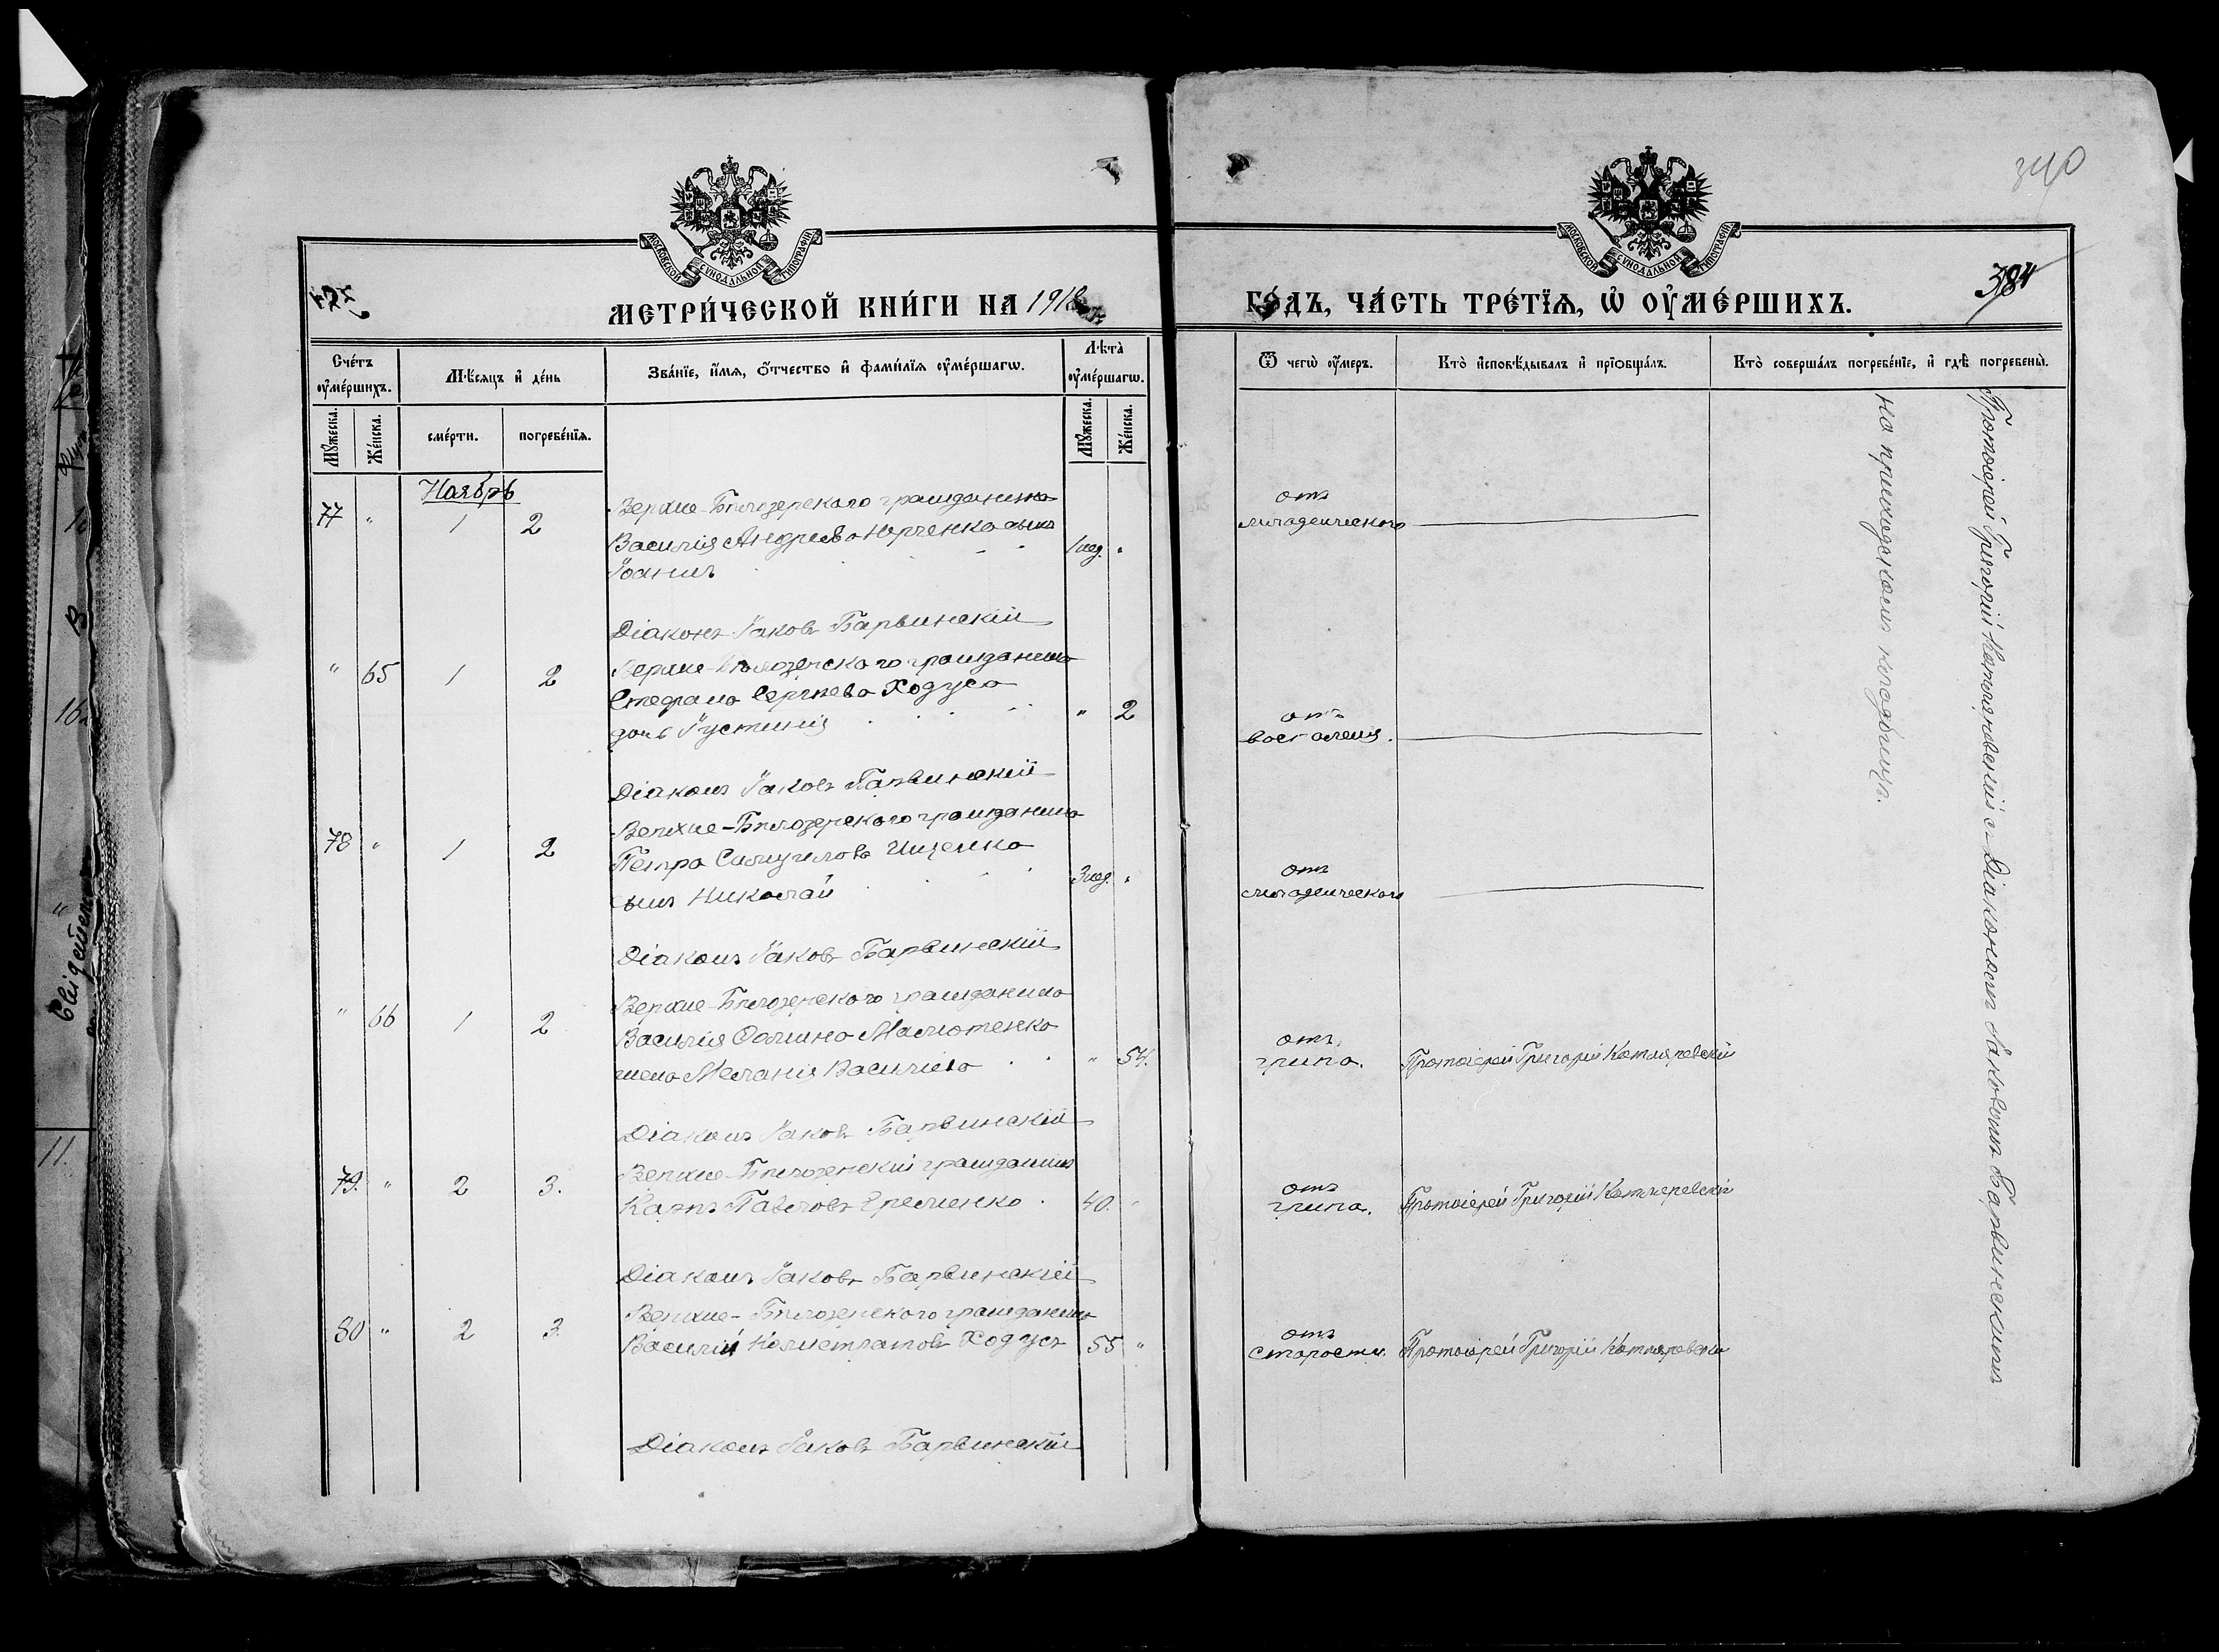 340
384
МОСКОВСКОЙ СѴНОДАЛЬНОЙ ТИПОГРАФІИ
МОСКОВСКОЙ СѴНОДАЛЬНОЙ ТИПОГРАФІИ
МЕТРИ́ЧЕСКОЙ КНИ́ГИ НА 1918
ГО́ДЪ, ЧА́СТЬ ТРЕ́ТЇѦ, Ѡ҆ ОУ҆МЕ́РШИХЪ.
Сче́тъ оу҆ме́ршихъ.
Мꙋ́жеска.
Же́нска.
Мѣ́сѧцъ и҆ де́нь
сме́рти.
погребе́нїѧ.
Зва́нїе, и҆́мѧ, ѻ҆́тчество и҆ фамѝлїѧ оу҆ме́ршагѡ.
Лѣ́та оу҆ме́ршагѡ.
Мꙋ́жеска.
Же́нска.
Ѿ чегѡ̀ оу҆́меръ.
Кто̀ и҆сповѣ́дывалъ и҆ прїѡбща́лъ.
Кто̀ соверша́лъ погребе́нїе, и҆ гдѣ̀ погребены̀.
Ноябрь
77 " 1 2
Верхне-Бѣлозерскаго гражданина
Василія Андреева Юрченко сынъ
Іоаннъ
1 нед. "
отъ
младенческаго
Діаконъ Іаковъ Барвинскій
" 65 1 2
Верхне-Бѣлозерскаго гражданина
Стефана Сергѣева Ходуса
дочь Іустинія
" 2
отъ
воспаленія.
Діаконъ Іаковъ Барвинскій
78 " 1 2
Верхне-Бѣлозерскаго гражданина
Петра Самуилова Ищенко
сынъ Николай
3 нед. "
отъ
младенческаго
Діаконъ Іаковъ Барвинскій
" 66 1 2
Верхне-Бѣлозерскаго гражданина
Василія Фомина Малютенко
жена Меланія Василіева
" 54.
отъ
грипа.
Протоіерей Григорій Котляревскій
Діаконъ Іаковъ Барвинскій
79. " 2 3.
Верхне-Бѣлозерскій гражданинъ
Карпъ Павловъ Еременко
40. "
отъ
грипа.
Протоіерей Григорій Котляревскій
Діаконъ Іаковъ Барвинскій
80 " 2 3.
Верхне-Бѣлозерскаго гражданина
Василій Калистратовъ Ходусъ
55 "
отъ
старости.
Протоіерей Григорій Котляревскій
Діаконъ Іаковъ Барвинскій
Протоіерей Григорій Котляревскій с Діакономъ Іаковомъ Барвинскимъ
на приходскомъ кладбищѣ.